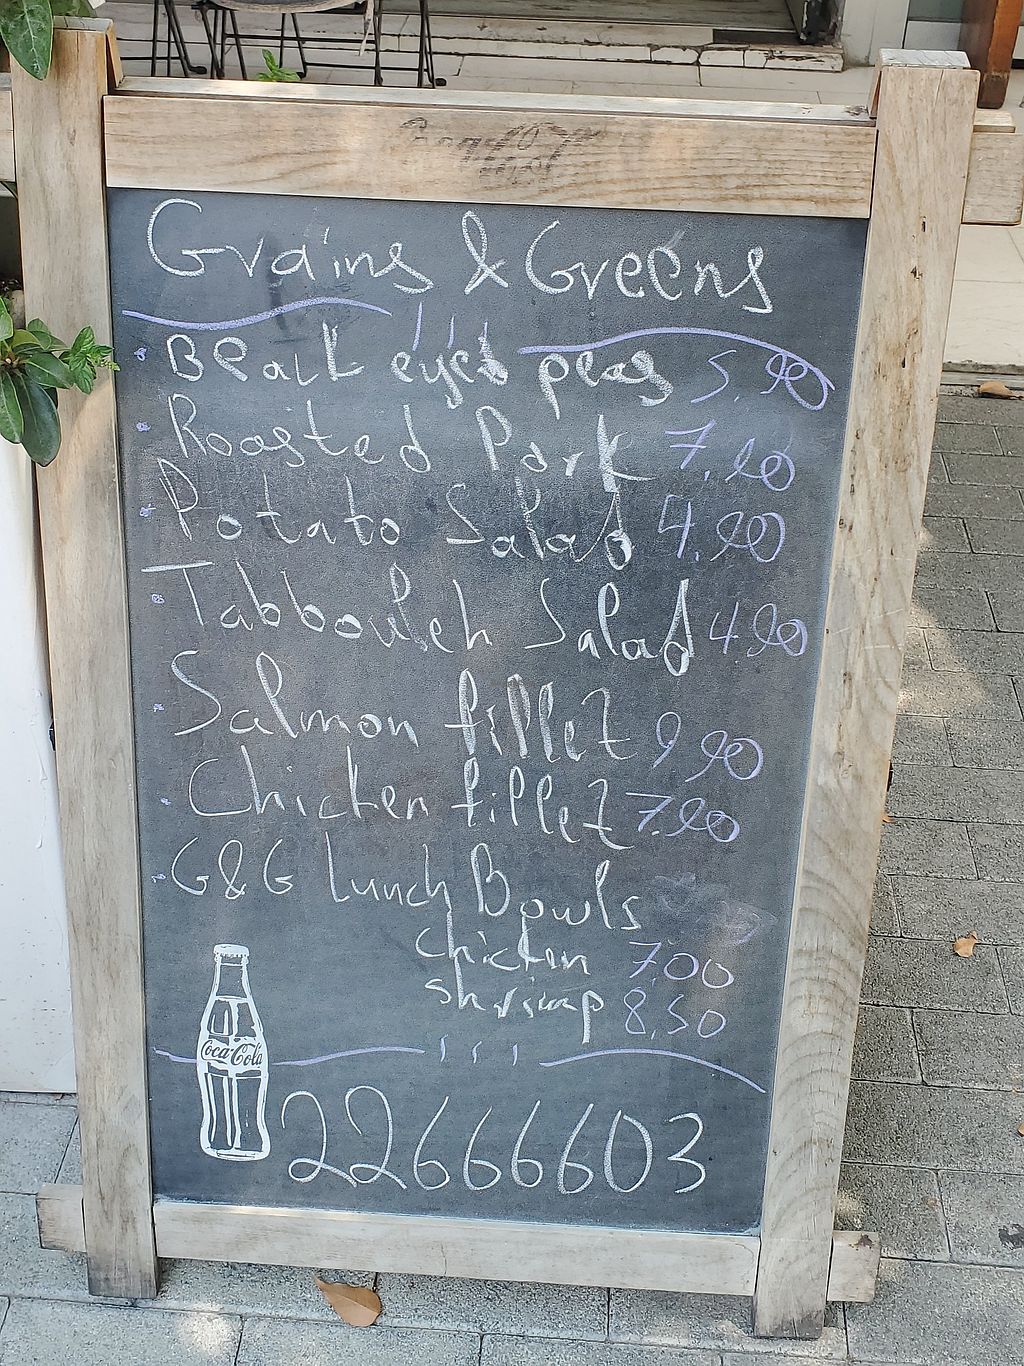 Grains & Greens
Black eyed peas 5.90
Roasted Pork 7.90
Potato Salad 4.90
Tabbouleh Salad 4.90
Salmon fillet 9.90
Chicken fillet 7.90
G&G Lunch Bowls
chicken 7.00
shrimp 8.50
Coca-Cola
22666603